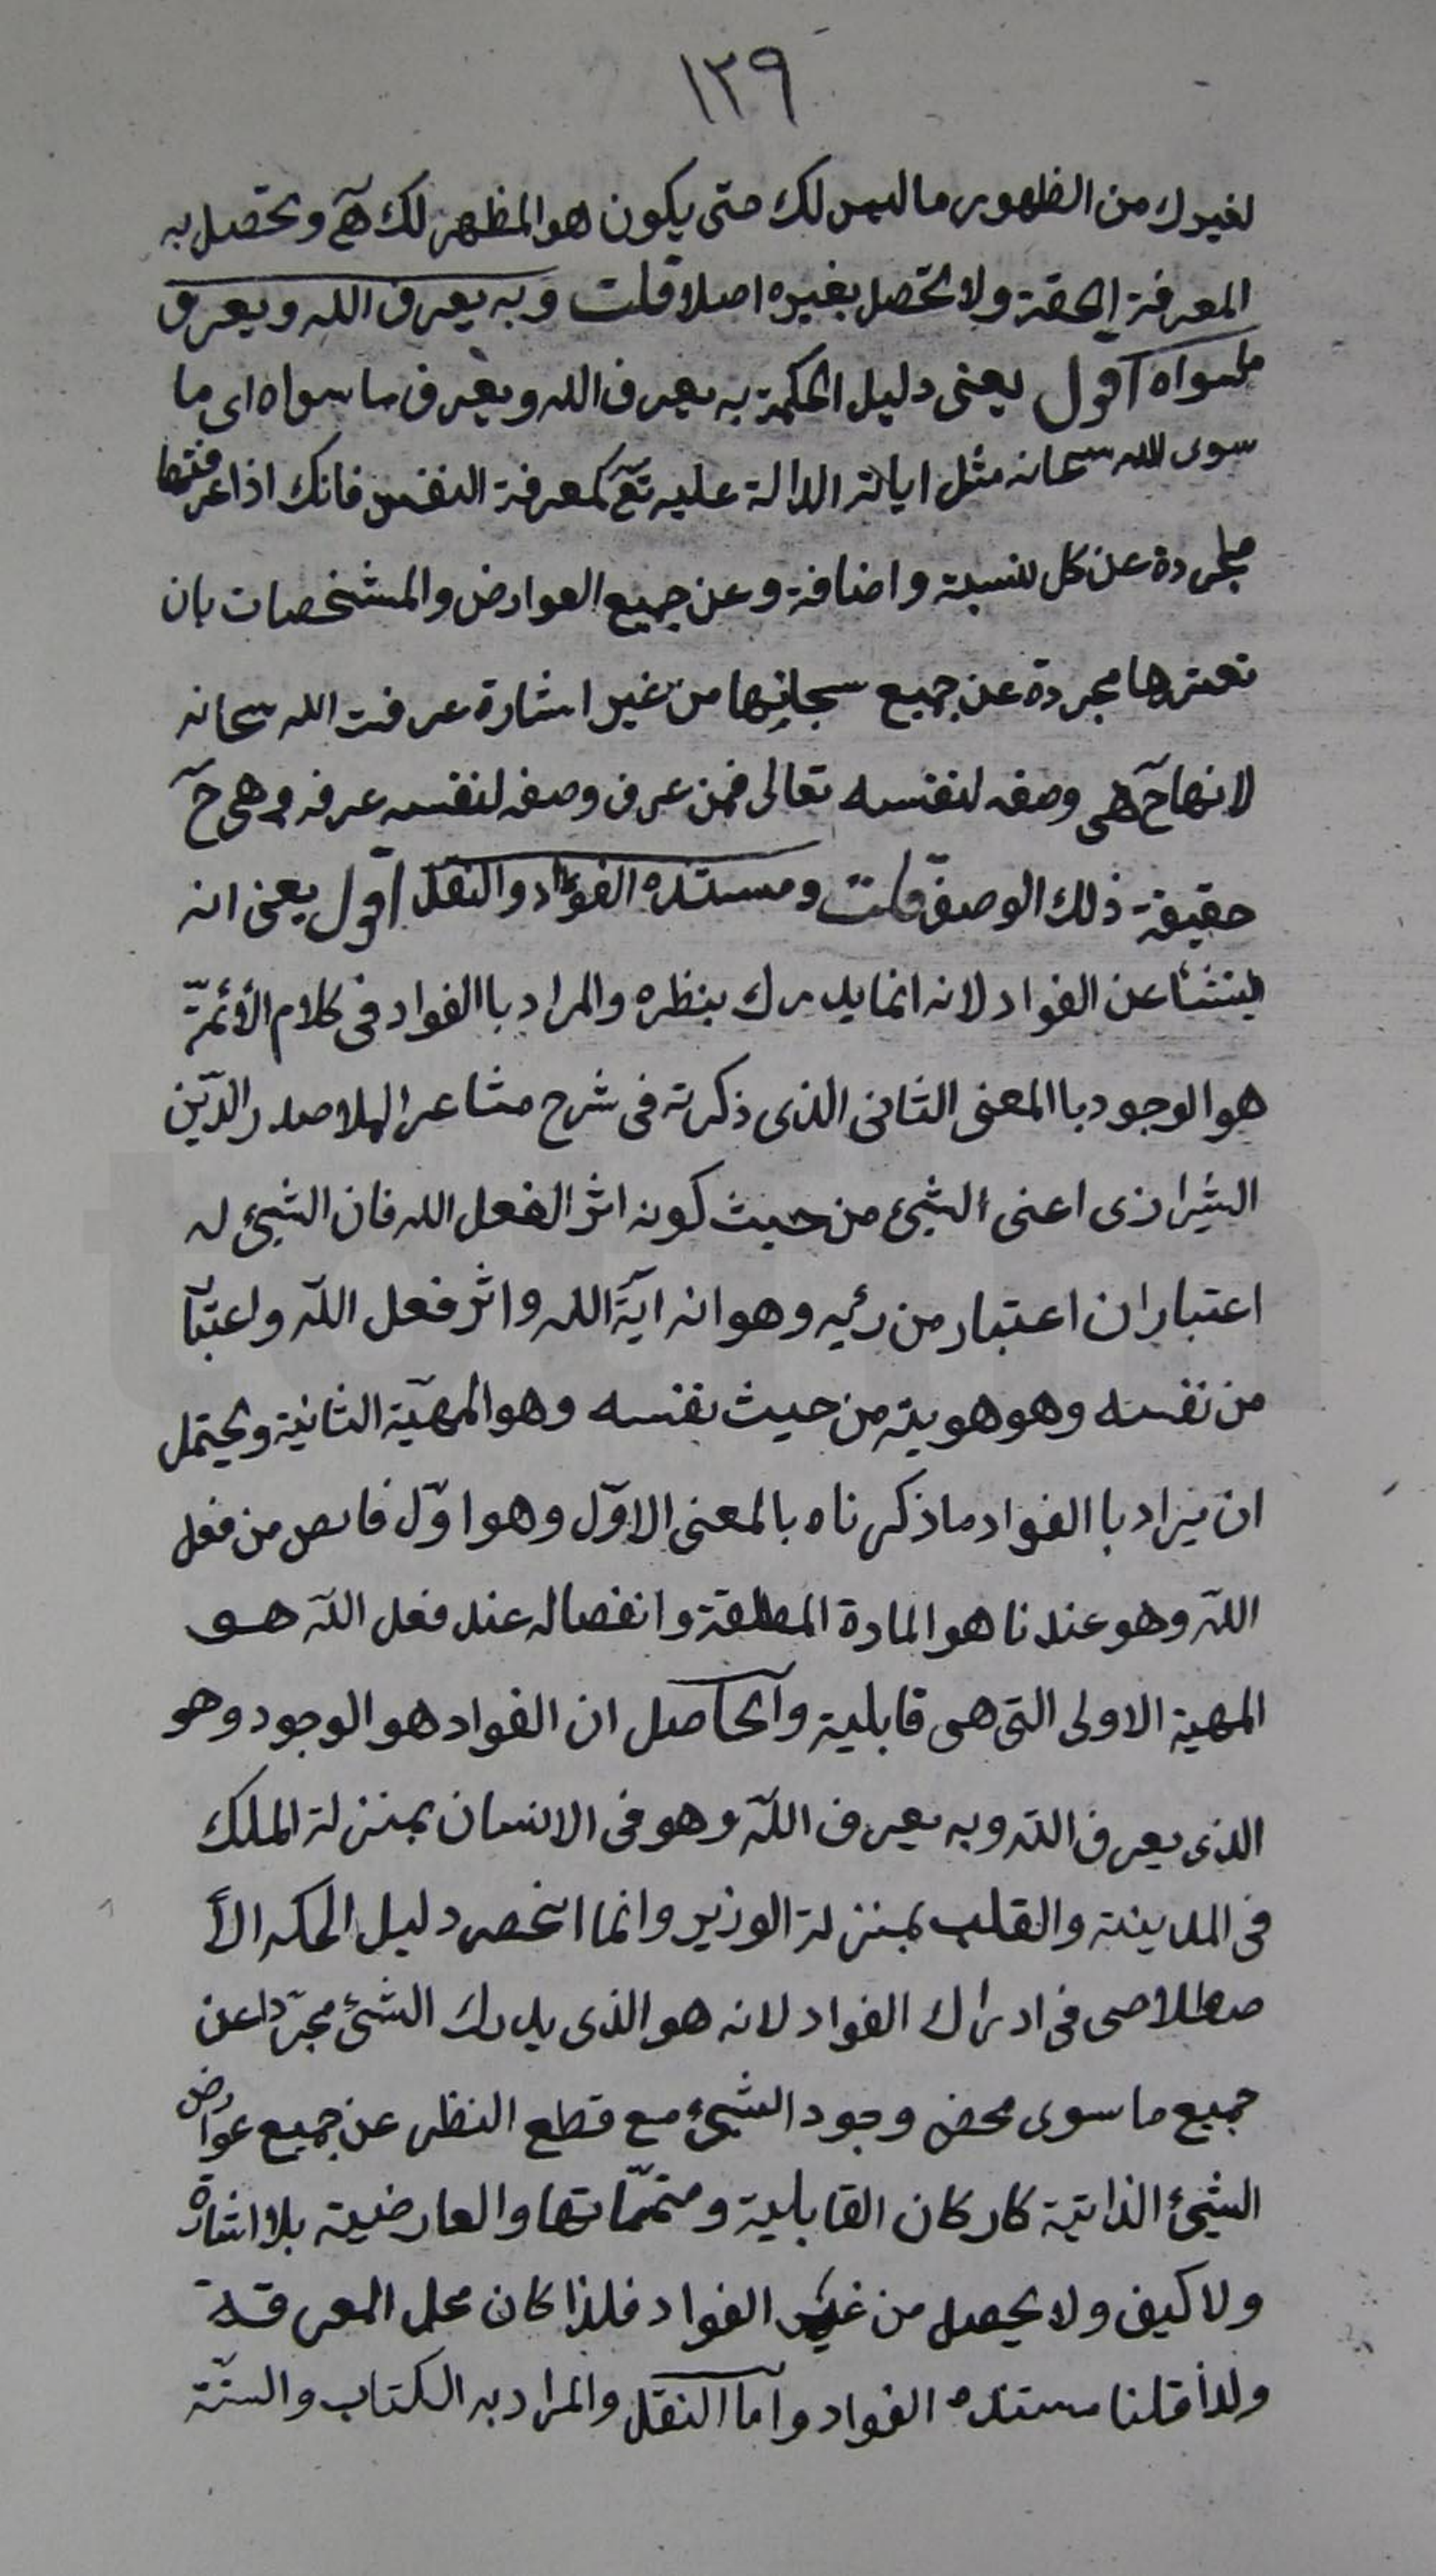 ١٣٩
لغيرك من الظهور ما ليس لك حتى يكون هو المظهر لك آه وتحصل به
المعرفة الحقة ولا تحصل بغيره اصلا قلت وبه يعرف الله ويعرف
ما سواه اقول يعنى دليل الحكمة به يعرف الله ويعرف ما سواه اى ما
سوى الله سبحانه مثل اياته الدالة عليه تع كمعرفة النفس فانك اذا عرفتها
مجردة عن كل نسبة واضافة وعن جميع العوارض والمشخصات بان
تعتبرها مجردة عن جميع سبحاتها من غير اشارة عرفت الله سبحانه
لانها ح هى وصفه لنفسه تعالى فمن عرف وصفه لنفسه عرفه وهى ح
حقيقة ذلك الوصف قلت ومستنده الفؤاد والنقل اقول يعنى انه
ينشأ عن الفواد لانه انما يدرك بنظره والمراد باالفواد فى كلام الأئمّة
هو الوجود باالمعنى الثانى الذى ذكرته فى شرح مشاعر الملا صدر الدّين
الشيرازى اعنى الشيئ من حيث كونه اثر الفعل الله فان الشيئ له
اعتباران اعتبار من ربه وهو انه اية الله واثر فعل اللّه واعتبا
من نفسه وهو هويته من حيث نفسه وهو المهيّة الثانية ويحتمل
ان يراد باالفواد ما ذكرناه بالمعنى الاوّل وهو اوّل فايص من فعل
اللّه وهو عندنا هو المادة المطلقة وانفصاله عند فعل اللّه هو
المهية الاولى التى هى قابلية والحاصل ان الفواد هو الوجود وهو
الذى يعرف اللّه وبه يعرف اللّه وهو فى الانسان بمنزلة الملك
فى المدينة والقلب بمنزلة الوزير وانما انحصر دليل الحكمه الأ
صطلاحى فى ادراك الفواد لانه هو الذى يدرك الشئ مجرّدا عن
جميع ما سوى محض وجود الشيئ مع قطع النظر عن جميع عوارض
الشيئ الذاتية كاركان القابلية ومتمّماتها والعارضية بلا اشارة
ولا كيف ولا يحصل من غير الفواد فلذا كان محل المعرفة
ولذا قلنا مستنده الفواد واما النقل والمراد به الكتاب والسنّة